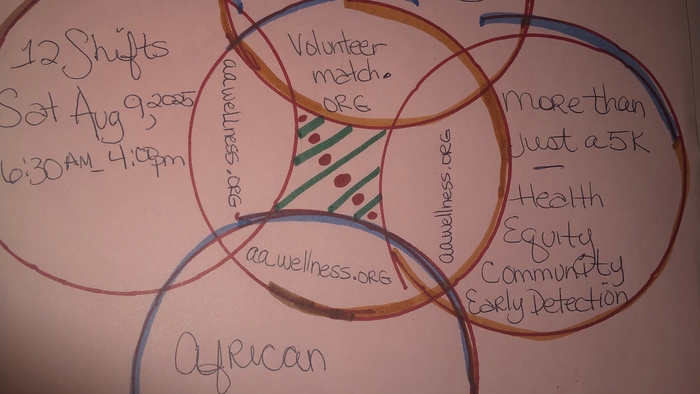 12 Shifts
Sat Aug 9, 2025
6:30 AM - 4:00pm
aawellness.ORG
Volunteer
match.
ORG
aawellness.ORG
more than
just a 5K
Health
Equity
Community
Early Detection
aawellness.ORG
African